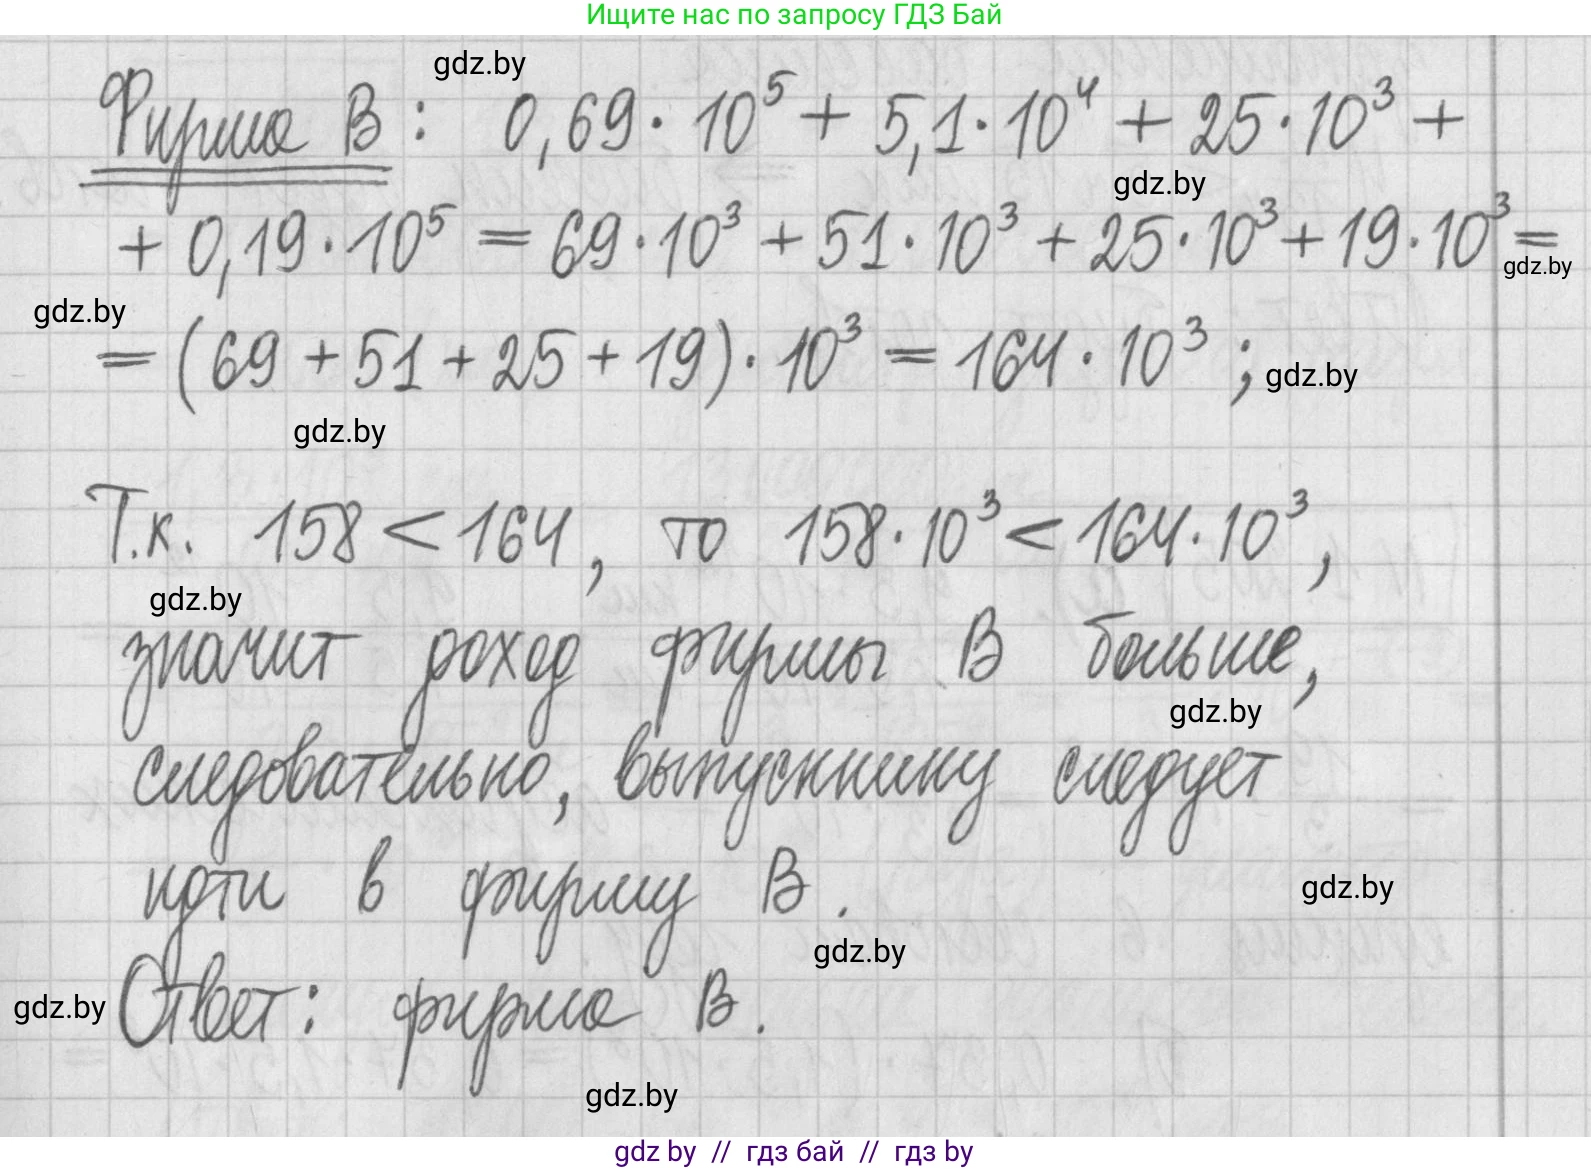 Ищите нас по запросу ГДЗ Бай
gdz.by
Фирма В: 0,69·10⁵ + 5,1·10⁴ + 25·10³ +
gdz.by
+ 0,19·10⁵ = 69·10³ + 51·10³ + 25·10³ + 19·10³ =
gdz.by
gdz.by
= (69 + 51 + 25 + 19)·10³ = 164·10³;
gdz.by
gdz.by
Т.к. 158 < 164, то 158·10³ < 164·10³,
gdz.by
значит доход фирмы В больше,
gdz.by
следовательно, выпускнику следует
идти в фирму В.
gdz.by
gdz.by
Ответ: фирма В.
gdz.by
gdz.by
gdz by // гдз бай // гдз by